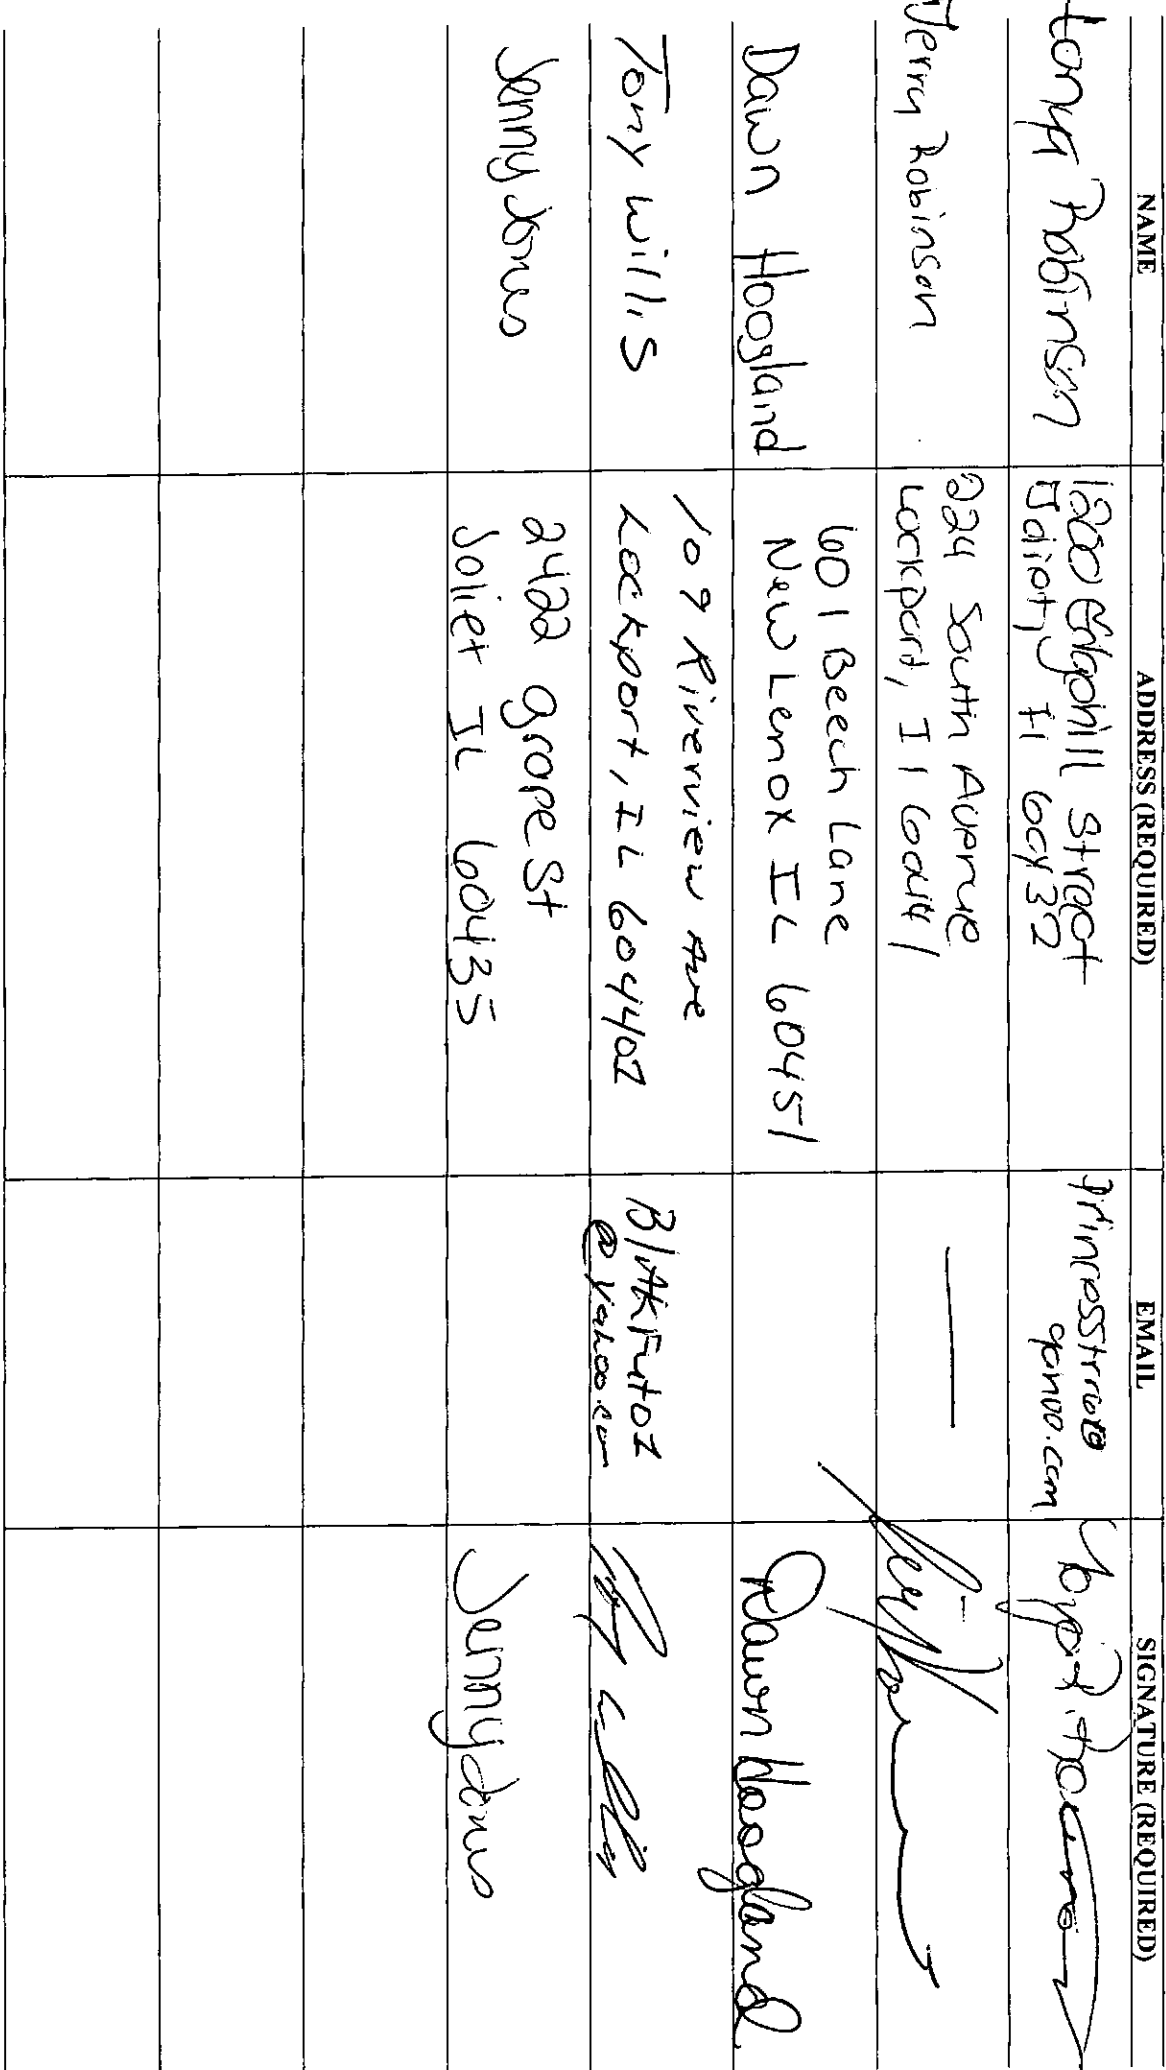 NAME ADDRESS (REQUIRED) EMAIL SIGNATURE (REQUIRED)
Robinson
1200 Street
Joliet, Il 60432
Jerry Robinson
224 South Avenue
Lockport, Il 60441
Dawn Hoogland
601 Beech Lane
New Lenox IL 60451
Dawn Hoogland
Tony Willis
109 Riverview Ave
Lockport, IL
@yahoo.com
Jenny Jones
2422 grape St
Joliet IL 60435
Jenny Jones